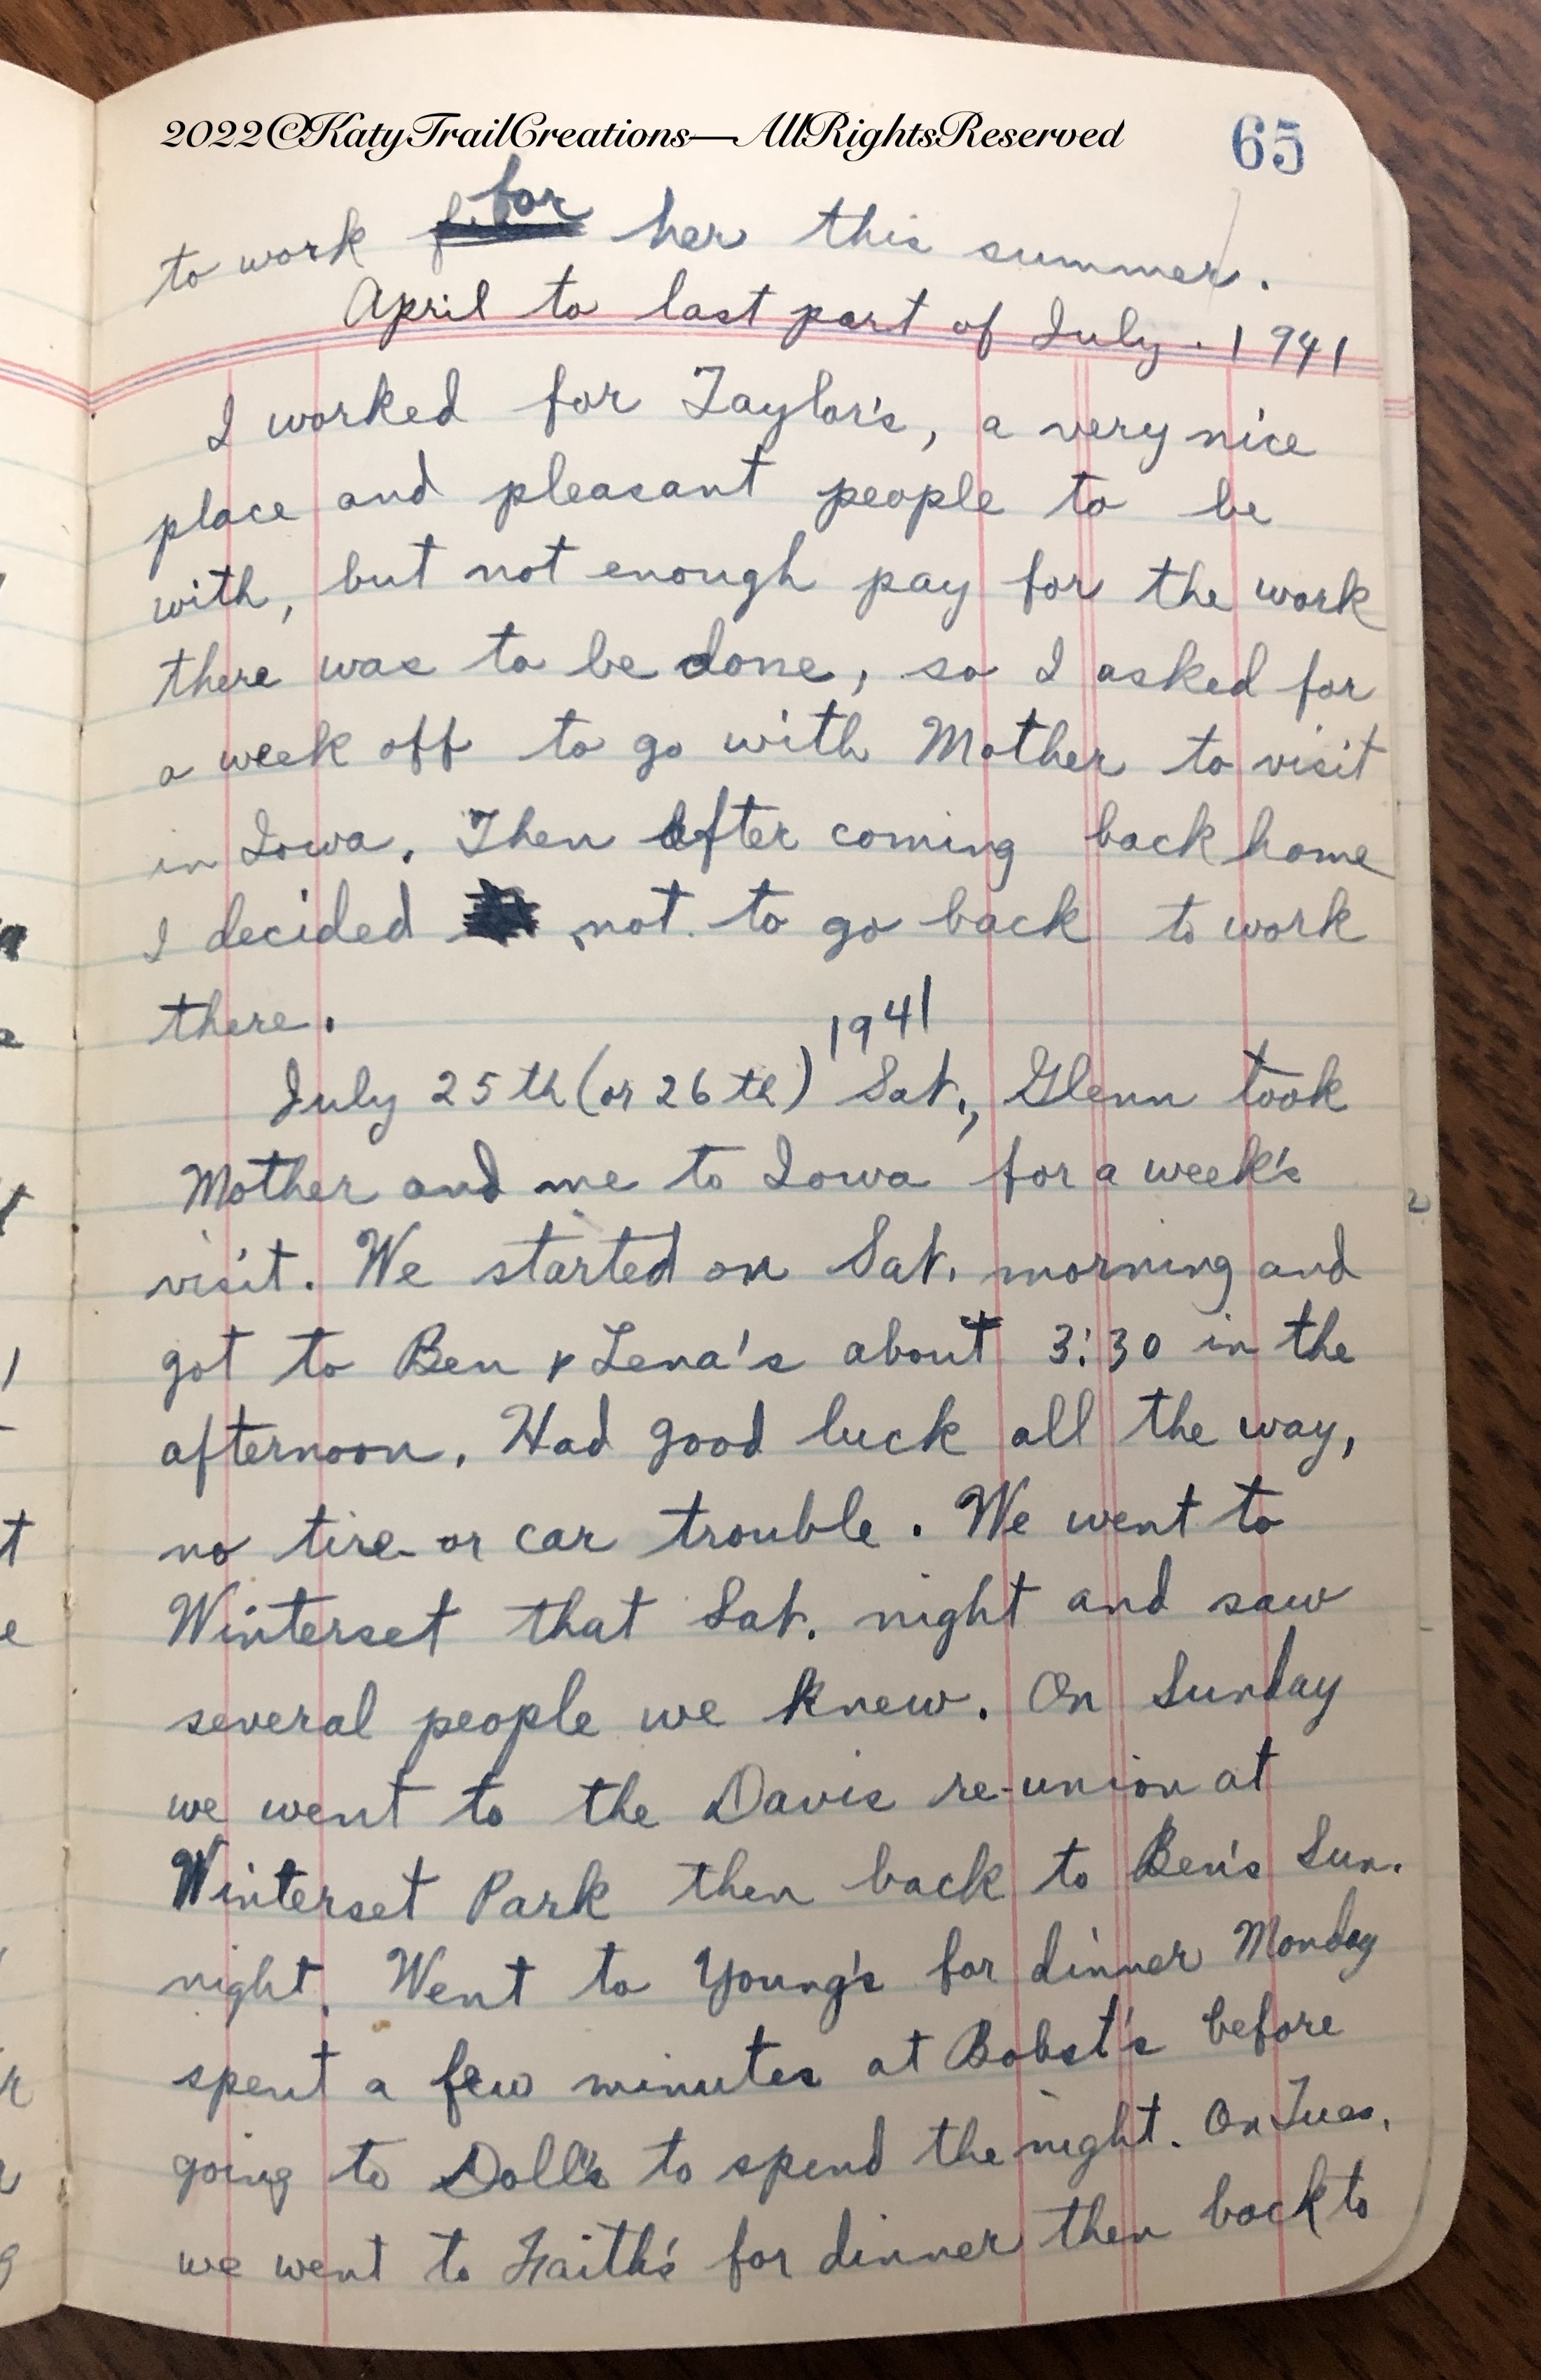 2022©KatyTrailCreations—AllRightsReserved
65
to work for her this summer.
April to last part of July. 1941
I worked for Taylor's, a very nice
place and pleasant people to be
with, but not enough pay for the work
there was to be done, so I asked for
a week off to go with Mother to visit
in Iowa. Then after coming back home
I decided not to go back to work
there.
1941
July 25th (or 26th) Sat., Glenn took
Mother and me to Iowa for a week's
visit. We started on Sat. morning and
got to Ben & Lena's about 3:30 in the
afternoon. Had good luck all the way,
no tire or car trouble. We went to
Winterset that Sat. night and saw
several people we knew. On Sunday
we went to the Davis re-union at
Winterset Park then back to Ben's Sun.
night. Went to Young's for dinner Monday
spent a few minutes at Bobst's before
going to Doll's to spend the night. On Tues.
we went to Faith's for dinner then back to